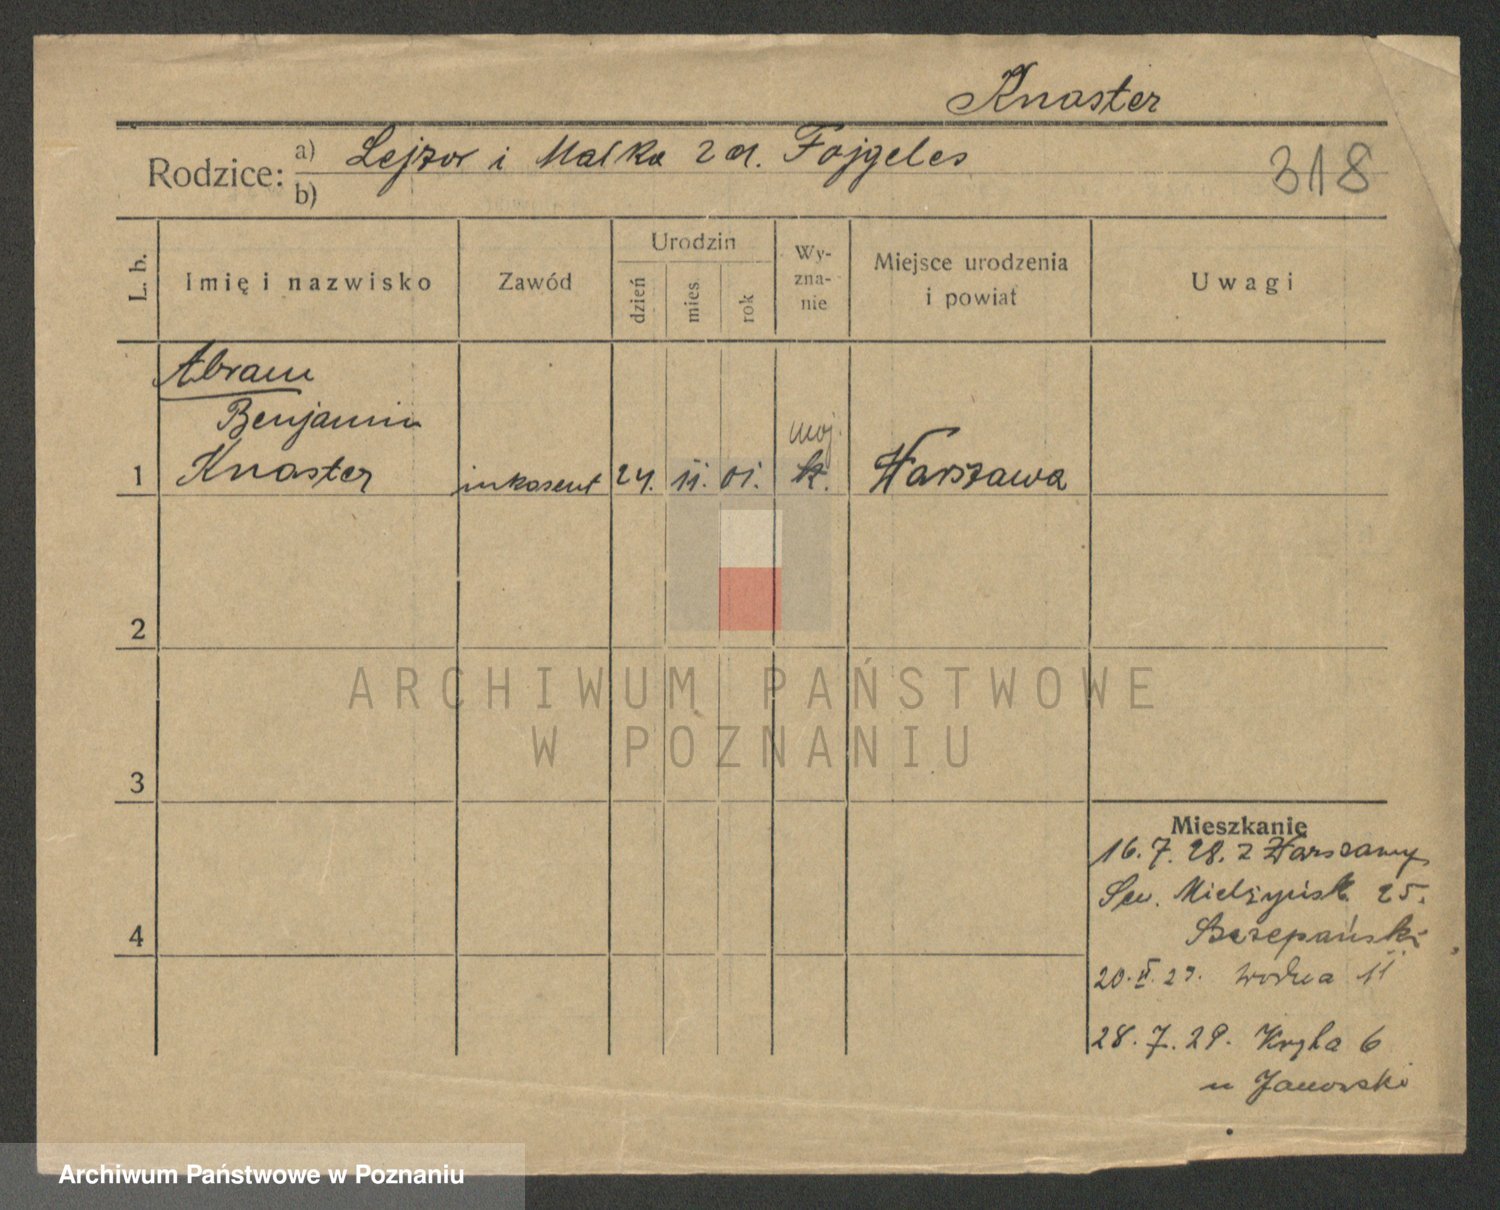 Knaster
Rodzice: a) Lejzor i Malka z d. Fajgeles
b)
318
L. b.
Imię i nazwisko
Zawód
Urodzin
dzień
mies.
rok
Wy-
zna-
nie
Miejsce urodzenia
i powiat
Uwagi
Abram
Benjamin
moj.
1 Knaster inkasent 24. 11. 01. k. Warszawa
2
3
4
Mieszkanie
16. 7. 28. z Warszawy
Sew. Mielżyńsk. 25.
Szczepański
20. 29. Wodna 11
28. 7. 29. Kręta 6
u Janowski
ARCHIWUM PAŃSTWOWE
W POZNANIU
Archiwum Państwowe w Poznaniu